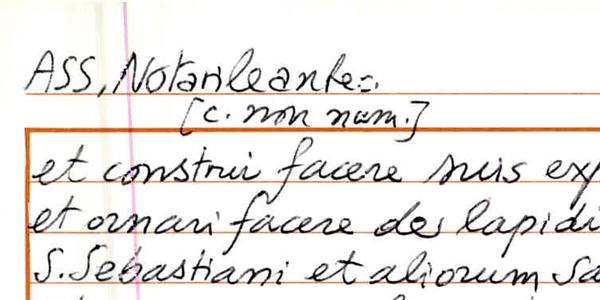 ASS, Notarile ante=.
[c. non num.]
et construi facere suis exp
et ornari facere de lapidi
S. Sebastiani et aliorum Sa